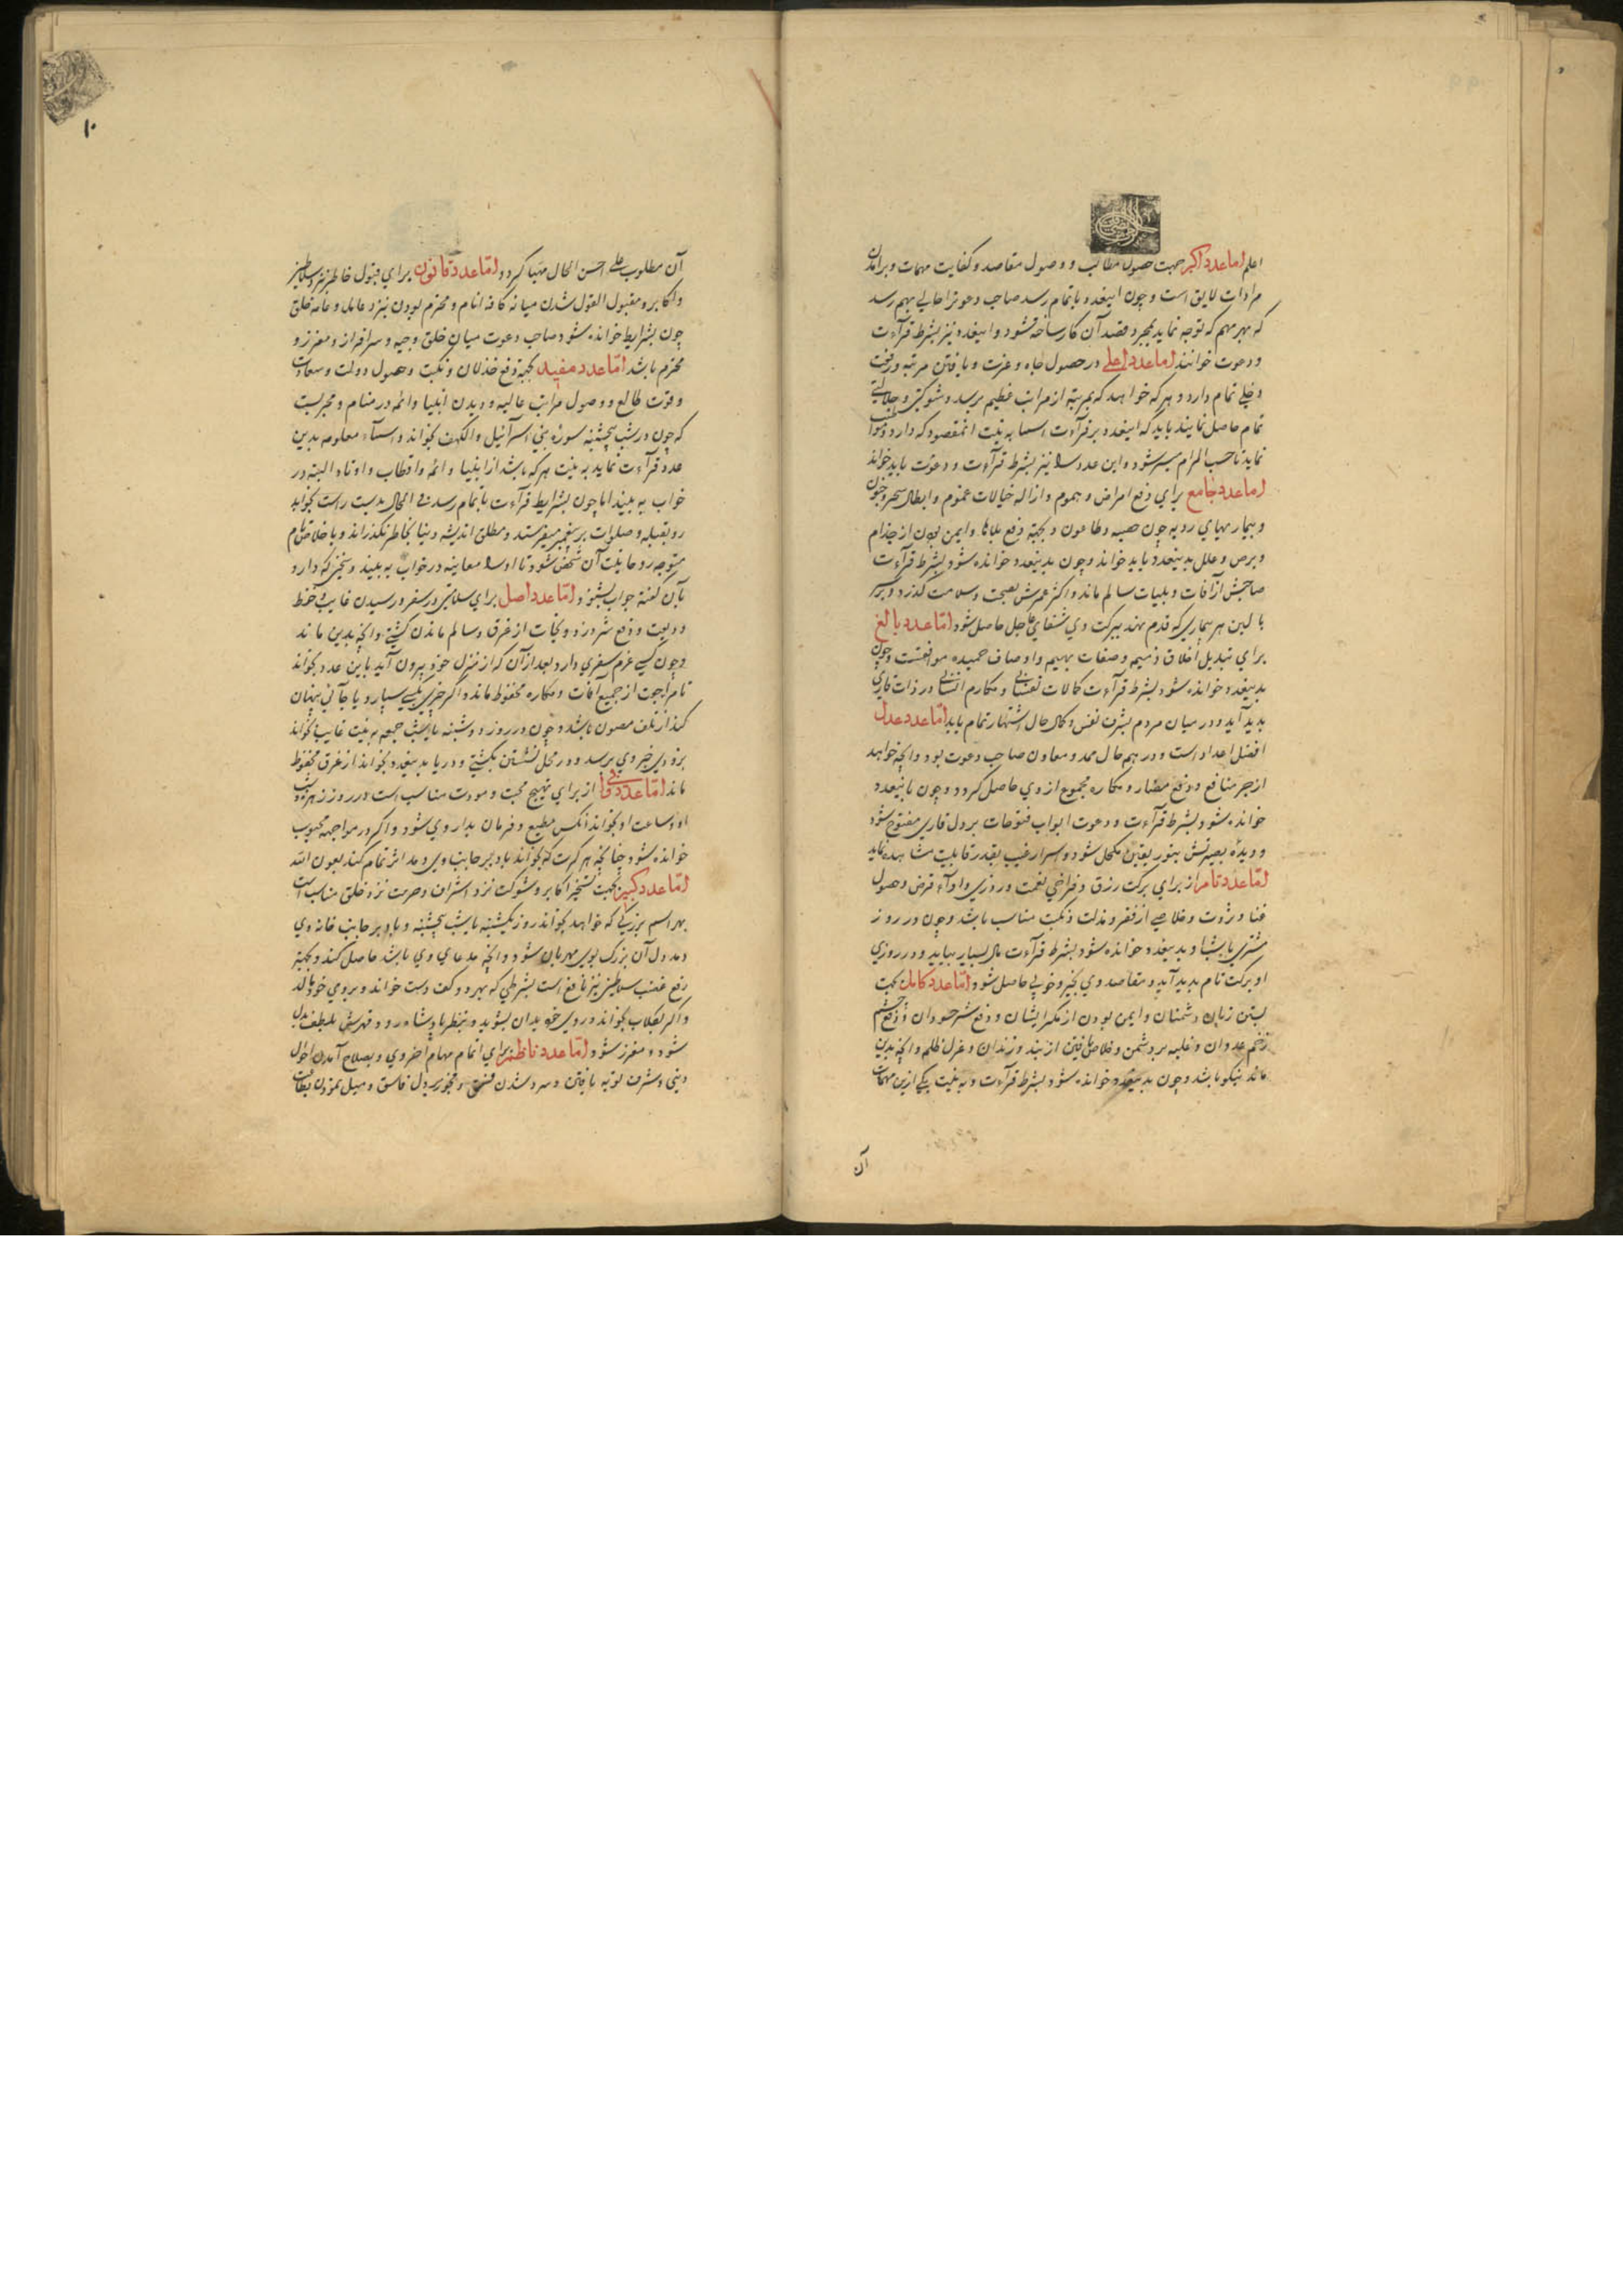 اعلم اما عدد اکبر جهت حصول مطالب و وصول مقاصد و کفایت مهمات و برآمدن
مرادات لایق است و چون اینعدد باتمام رسد صاحب دعوترا حالی بهم رسد
که بهر مهم که توجه نماید بمجرد قصد آن کار ساخته شود و اینعدد نیز بشرط قرآءت
و دعوت خوانند اما عدد اعلی در حصول جاه و عزت و یافتن مرتبه و رفعت
دخلی تمام دارد و هر که خواهد که بمرتبهٔ از مراتب عظیم برسد و شوکتی و جلالتی
تمام حاصل نماید باید که اینعدد بر قرآءت اسما به نیت انمقصود که دارد
نماید تا حسب المرام میسر شود و این عدد را نیز بشرط قرآءت و دعوت باید خواند
اما عدد جامع برای دفع امراض و هموم و ازاله خیالات غموم و ابطال سحر و جنون
و بیماریهای ردیه چون حصبه و طاعون و بجهة دفع بلاها و ایمن بودن از جذام
و برص و علل بدینعدد باید خواند و چون بدینعدد خوانده شود بشرط قرآءت
صاحبش از آفات و بلیات سالم ماند و اکثر عمرش بصحت و سلامت گذرد و بر سر
بالین هر بیماری که قدم نهد ببرکت وی شفای عاجل حاصل شود اما عدد بالغ
برای تبدیل اخلاق ذمیمه و صفات بهیمه و اوصاف حمیده موافقست و چون
بدینعدد خوانده شود بشرط قرآءت کمالات نفسانی و مکارم انسانی در ذات قاری
پدید آید و در میان مردم بشرف نفس و کمال حال اشتهار تمام یابد اما عدد عدل
افضل اعداد است و در همه حال ممد و معاون صاحب دعوت بود و انچه خواهد
از جر منافع و دفع مضار و مکاره مجموع از وی حاصل گردد و چون باینعدد
خوانده شود بشرط قرآءت و دعوت ابواب فتوحات بر دل قاری مفتوح شود
و دیدهٔ بصیرتش بنور یقین مکحل شود و اسرار غیب بقدر قابلیت مشاهده نماید
اما عدد تام از برای برکت رزق و فراخی نعمت و روزی و ادآء قرض و حصول
غنا و ثروت و خلاصی از فقر و مذلت و نکبت مناسب باشد و چون در روز
مشتری یا شب او بدینعدد خوانده شود بشرط قرآءت مال بسیار بیابد و در روزی
او برکت تام پدید آید و مقاصد وی بخیر و خوبی حاصل شود اما عدد کامل بجهت
بستن زبان دشمنان و ایمن بودن از مکر ایشان و دفع شر حسودان و دفع چشم
زخم عدوان و غلبه بر دشمن و خلاص یافتن از بند و زندان و عزل ظلمه و انچه بدین
ماند نیکو باشد و چون بدینعدد خوانده شود بشرط قرآءت و به نیت یکی ازین مهمات
آن
۱۰
آن مطلوب علی احسن الحال مهیا گردد اما عدد قانون برای قبول خاطر نزد سلاطین
و اکابر و مقبول القول شدن میانه کافه انام و محترم بودن نزد عامل و عامه خلق
چون بشرایط خوانده شود صاحب دعوت میان خلق وجیه و سرافراز و معزز و
محترم باشد اما عدد مفید بجهة دفع خذلان و نکبت و حصول دولت و سعادت
و قوت طالع و وصول مراتب عالیه و دیدن انبیا و ائمه در منام و مجربست
که چون در شب پنجشنبه سورهٔ بنی اسرآئیل و الکهف بخواند و اسمآء معلومه بدین
عدد قرآءت نماید به نیت هر که باشد از انبیا و ائمه و اقطاب و اوتاد البته در
خواب به بیند اما چون بشرایط قرآءت باتمام رسد فی الحال بدست راست بخوابد
رو بقبله و صلوات بر پیغمبر میفرستد و مطلق اندیشه دنیا بخاطر نگذراند و باخلاص تمام
متوجه روحانیت آن شخص شود تا او را معاینه در خواب به بیند و سخنی که دارد
بآن گفته جواب بشنود اما عدد اصل برای سلامتی در سفر و رسیدن غایب و حفظ
ودیعت و دفع شر دزد و نجات از غرق و سالم ماندن کشتی و انچه بدین ماند
و چون کسی عزم سفری دارد بعد از آن که از منزل خود بیرون آید باین عدد بخواند
تا مراجعت از جمیع آفات و مکاره محفوظ ماند و اگر چیزی بکسی سپارد یا جائی پنهان
کند از تلف مصون باشد و چون در روز دوشنبه یا شب جمعه به نیت غایب بخواند
بزودی خبر وی برسد و در محل نشستن بکشتی و دریا بدینعدد بخواند از غرق محفوظ
ماند اما عدد وفی از برای تهییج محبت و مودت مناسب است در روز زهره و شب
او و ساعت او بخواند انکس مطیع و فرمان بدار وی شود و اگر در مواجهه محبوب
خوانده شود چنانچه هر کرت که بخواند باد بر جانب وی دمد اثر تمام کند بعون الله
اما عدد کبیر بجهت تسخیر اکابر و شوکت نزد اشراف و حرمت نزد خلق مناسب است
بهر اسم بزرگی که خواهد بخواند روز یکشنبه یا شب پنجشنبه و باد بر جانب خانه وی
دمد دل آن بزرگ بوی مهربان شود و انچه مدعای وی باشد حاصل کند و بجهة
رفع غضب سلاطین نیز نافع است بشرطی که بهر دو کف دست خواند و بروی خود مالد
و اگر بگلاب بخواند و روی خود بدان بشوید و بنظر پادشاه رود قهرش بلطف بدل
شود و معزز شود اما عدد ناظم برای اتمام مهام اخروی و بصلاح آمدن احوال
دینی و شرف توبه یافتن و سرد شدن فسق و فجور بر دل فاسق و میل نمودن بطاعت